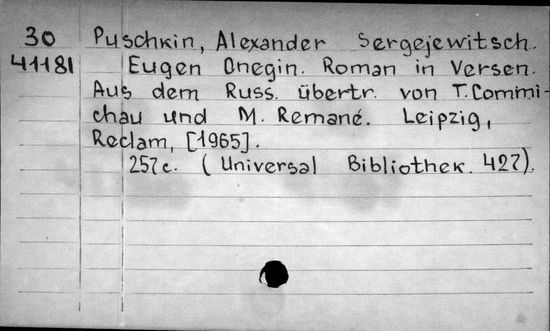 30 Puschkin, Alexander Sergejewitsch.
41181 Eugen Onegin. Roman in Versen.
Aus dem Russ. übertr. von T. Commi-
chau und M. Remané. Leipzig,
Reclam, [1965].
257 c. (Universal Bibliothek. 427).